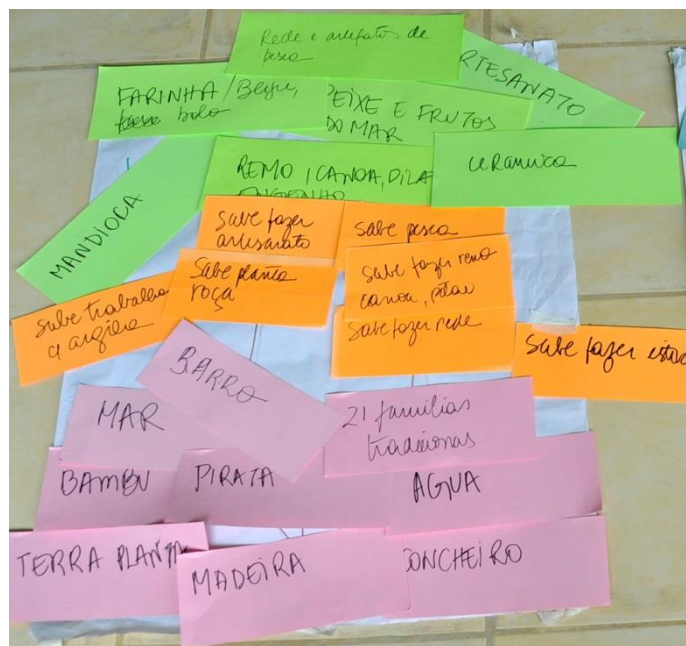 Rede e artefatos de
pesca
ARTESANATO
FARINHA/Beiju,
bolo
PEIXE E FRUTOS
DO MAR
REMO, CANOA, PILÃ
ENGENHO
CERAMICA
MANDIOCA
Sabe fazer
artesanato
Sabe pesca
Sabe planta
roça
Sabe fazer remo
canoa, pilão
Sabe trabalha
a argila
Sabe fazer rede
Sabe fazer
BARRO
MAR
21 famílias
tradicionas
BAMBU
PIRATA
AGUA
TERRA PLANTA
MADEIRA
CONCHEIRO